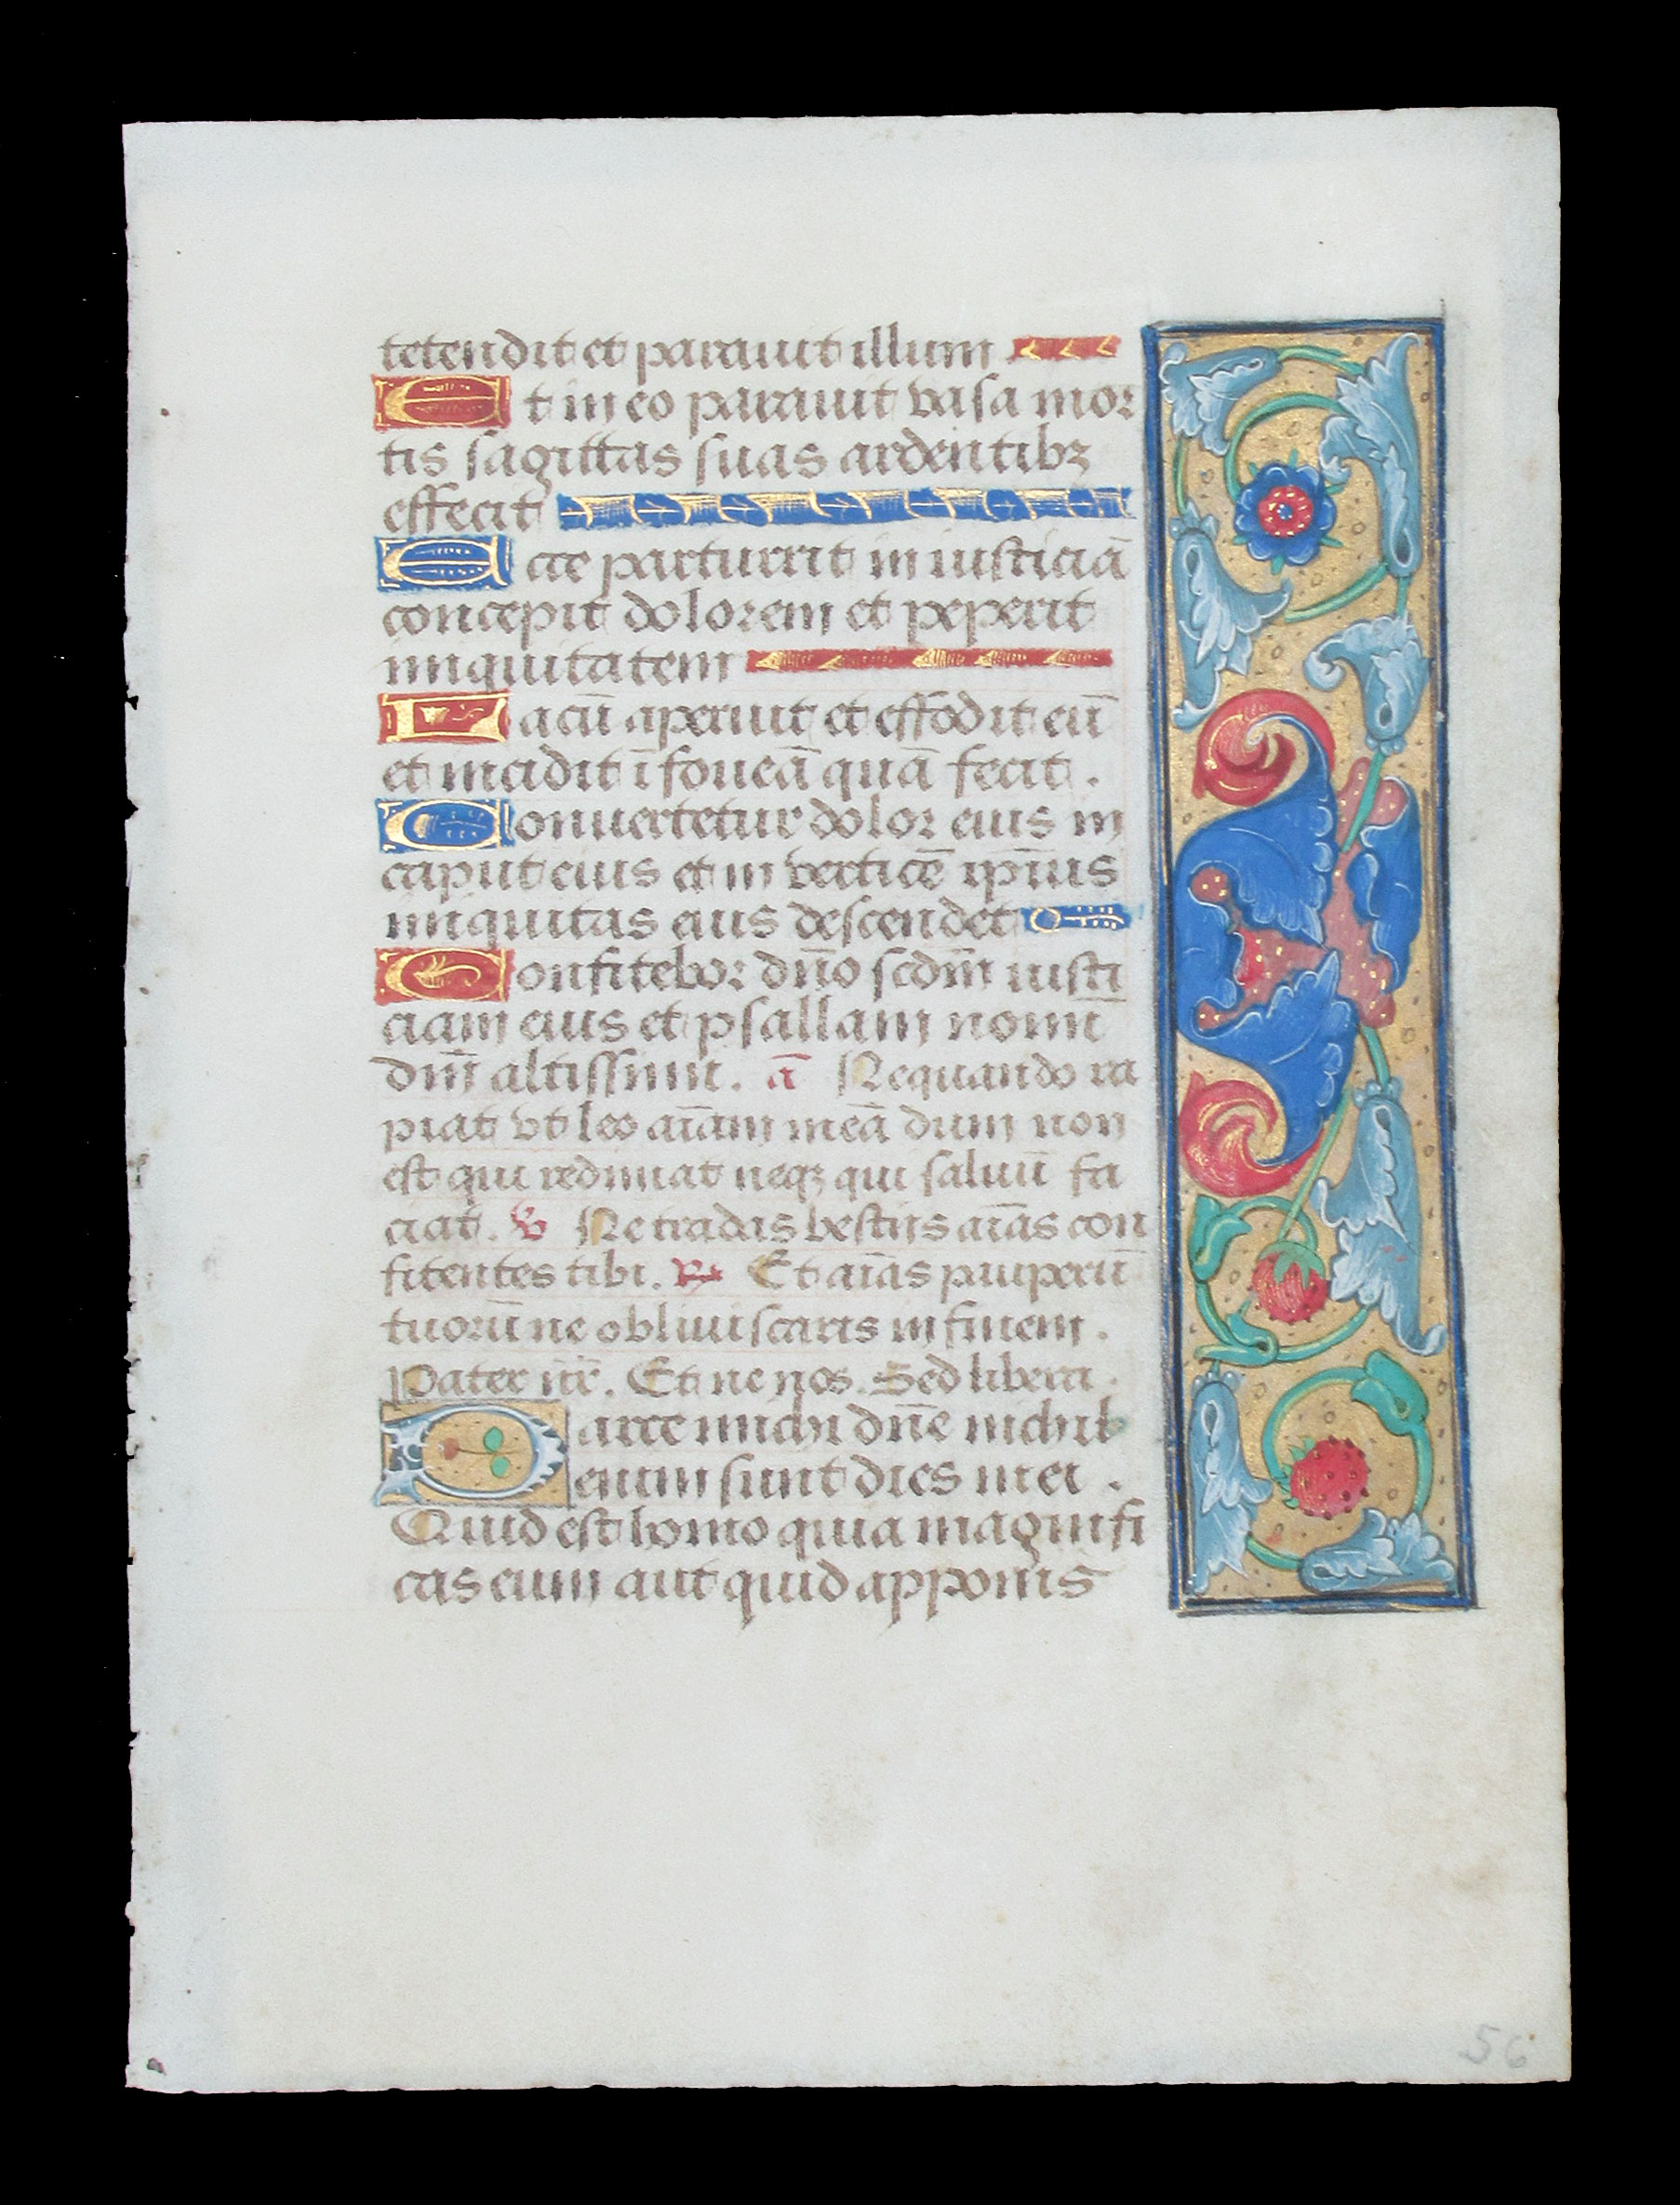 tetendit et parauit illum
Et in eo parauit vasa mor
tis sagittas suas ardentibꝫ
effecit
Ecce parturiit in iusticiā
concepit dolorem et peperit
iniquitatem
Lacū aperuit et effodit eū
et incidit ī foueā quā fecit.
Conuertetur dolor eius in
caput eius et in verticē ip̄ius
iniquitas eius descendet
Confitebor dn̄o scdm̄ iusti
ciam eius et psallam nomī
dn̄i altissimi. ā Nequando ra
piat vt leo aīam meā dum non
est qui redimat neqꝫ qui saluū fa
ciat. v̄ Ne tradas bestiis aīas con
fitentes tibi. ℞ Et aīas pauperū
tuorū ne obliuiscaris in finem.
Pater nr̄. Et ne nos. Sed libera.
Parce michi dn̄e nichil
enim sunt dies mei.
Quid est homo quia magnifi
cas eum aut quid apponis
56